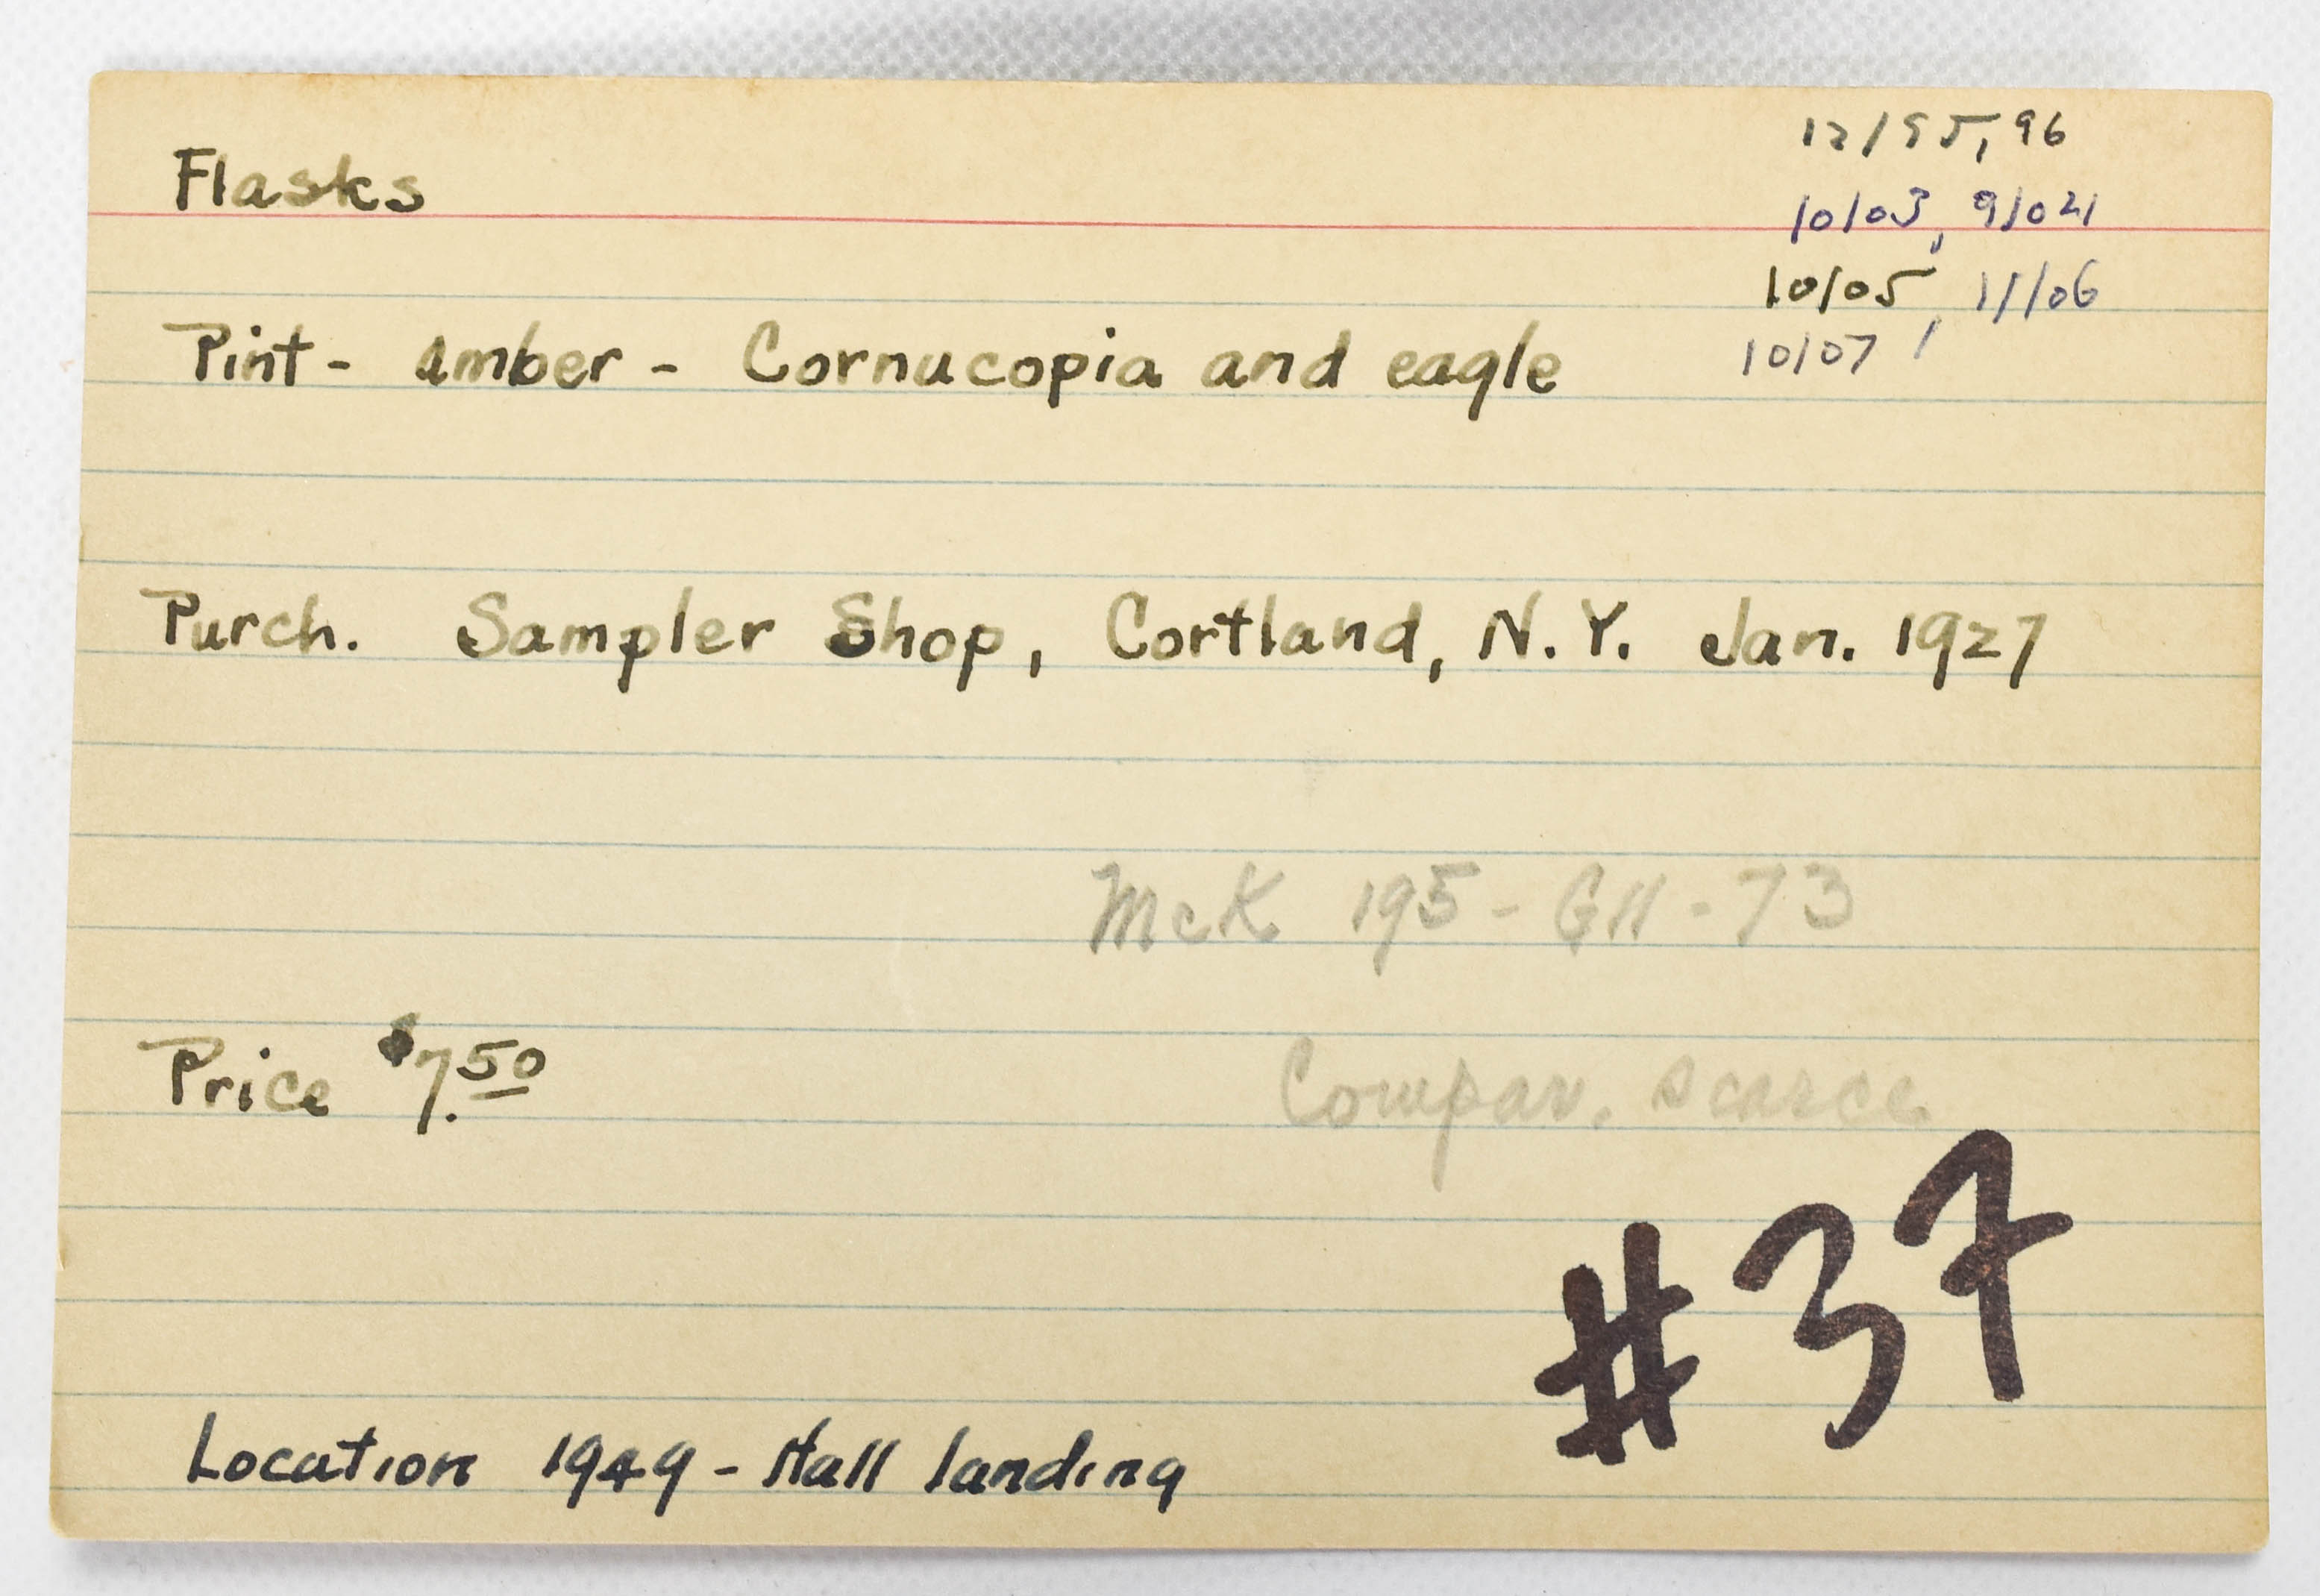 Flasks
12/95, 96
10/03, 9/04
10/05, 11/06
10/07,
Pint - amber - Cornucopia and eagle
Purch. Sampler Shop, Cortland, N.Y. Jan. 1927
McK 195 - GII - 73
Price $7.50
Compar. scarce
#37
Location 1949 - Hall landing